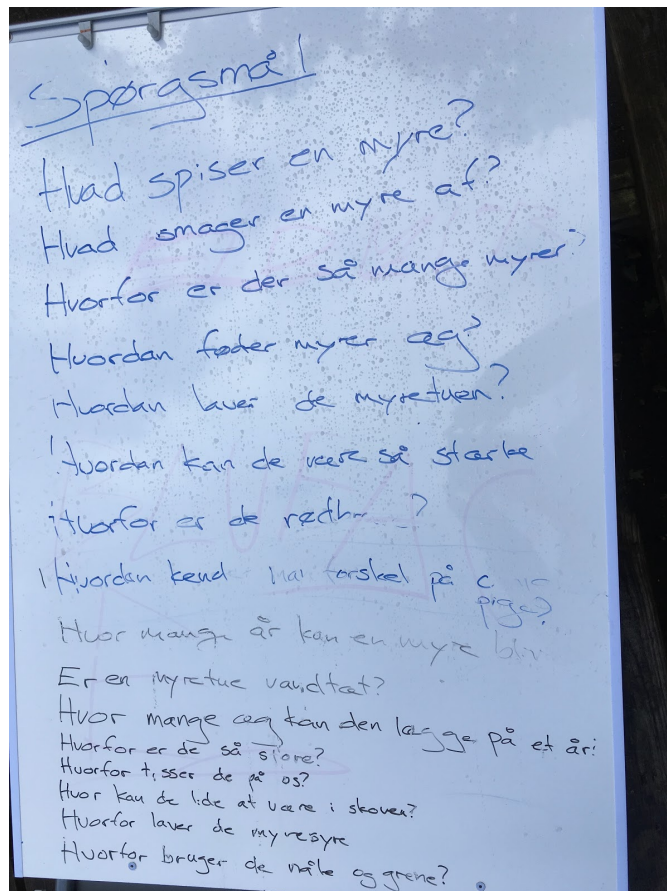 Spørgsmål
Hvad spiser en myre?
Hvad smager en myre af?
Hvorfor er der så mange myrer?
Hvordan føder myrer æg?
Hvordan laver de myretuen?
Hvordan kan de være så stærke
Hvorfor er de ?
Hvordan kend man forskel på
pige?
Hvor mange år kan en myre bliv
Er en myretue vandtæt?
Hvor mange æg kan den lægge på et år?
Hvorfor er de så store?
Hvorfor tisser de på os?
Hvor kan de lide at være i skoven?
Hvorfor laver de myresyre
Hvorfor bruger de nåle og grene?